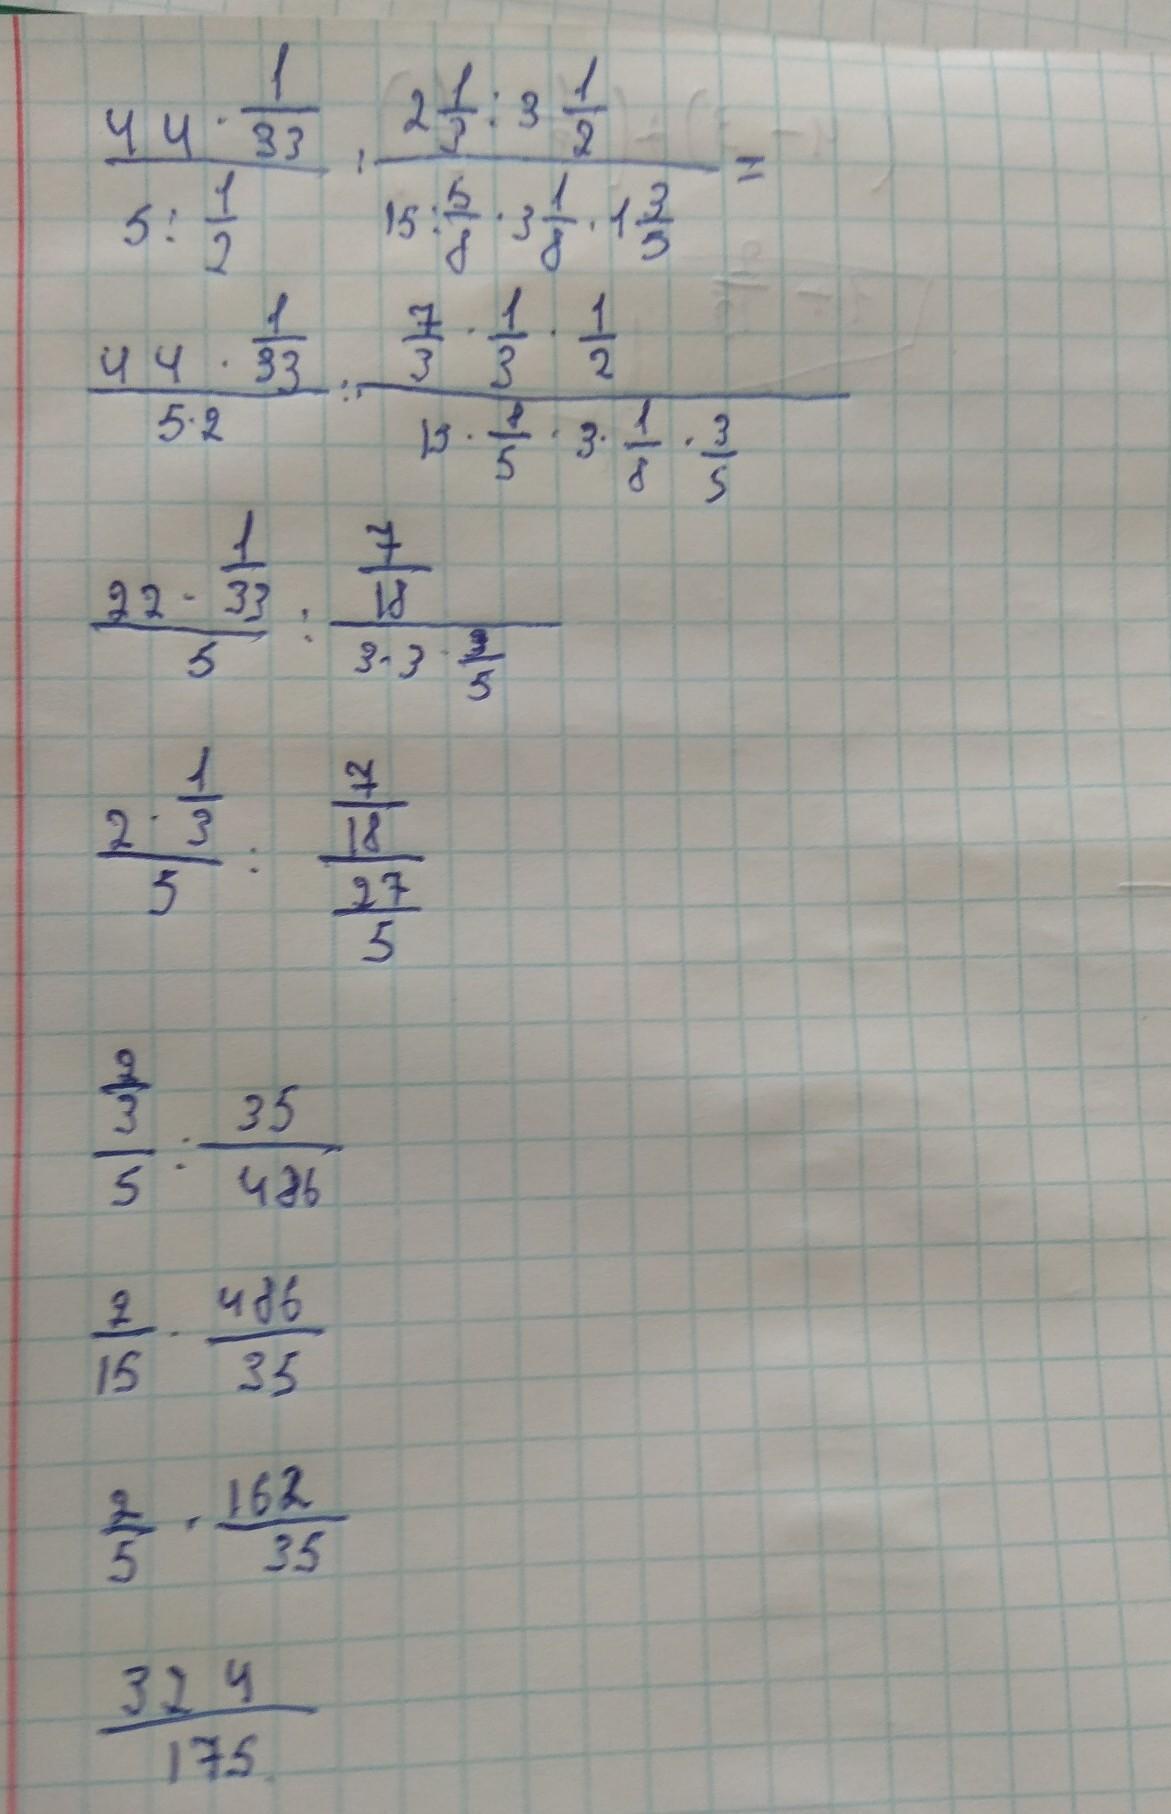 44 · 1/33 / 5 : 1/2 : 2 1/3 : 3 1/2 / 15 : 5/8 · 3 1/8 · 1 3/5 =
44 · 1/33 / 5·2 : 7/3 · 1/3 · 1/2 / 15 · 8/5 · 3 · 1/8 · 3/5
22 · 1/33 / 5 : 7/18 / 3·3 · 3/5
2 · 1/3 / 5 : 7/18 / 27/5
2/3 / 5 : 35/486
2/15 · 486/35
2/5 · 162/35
324/175